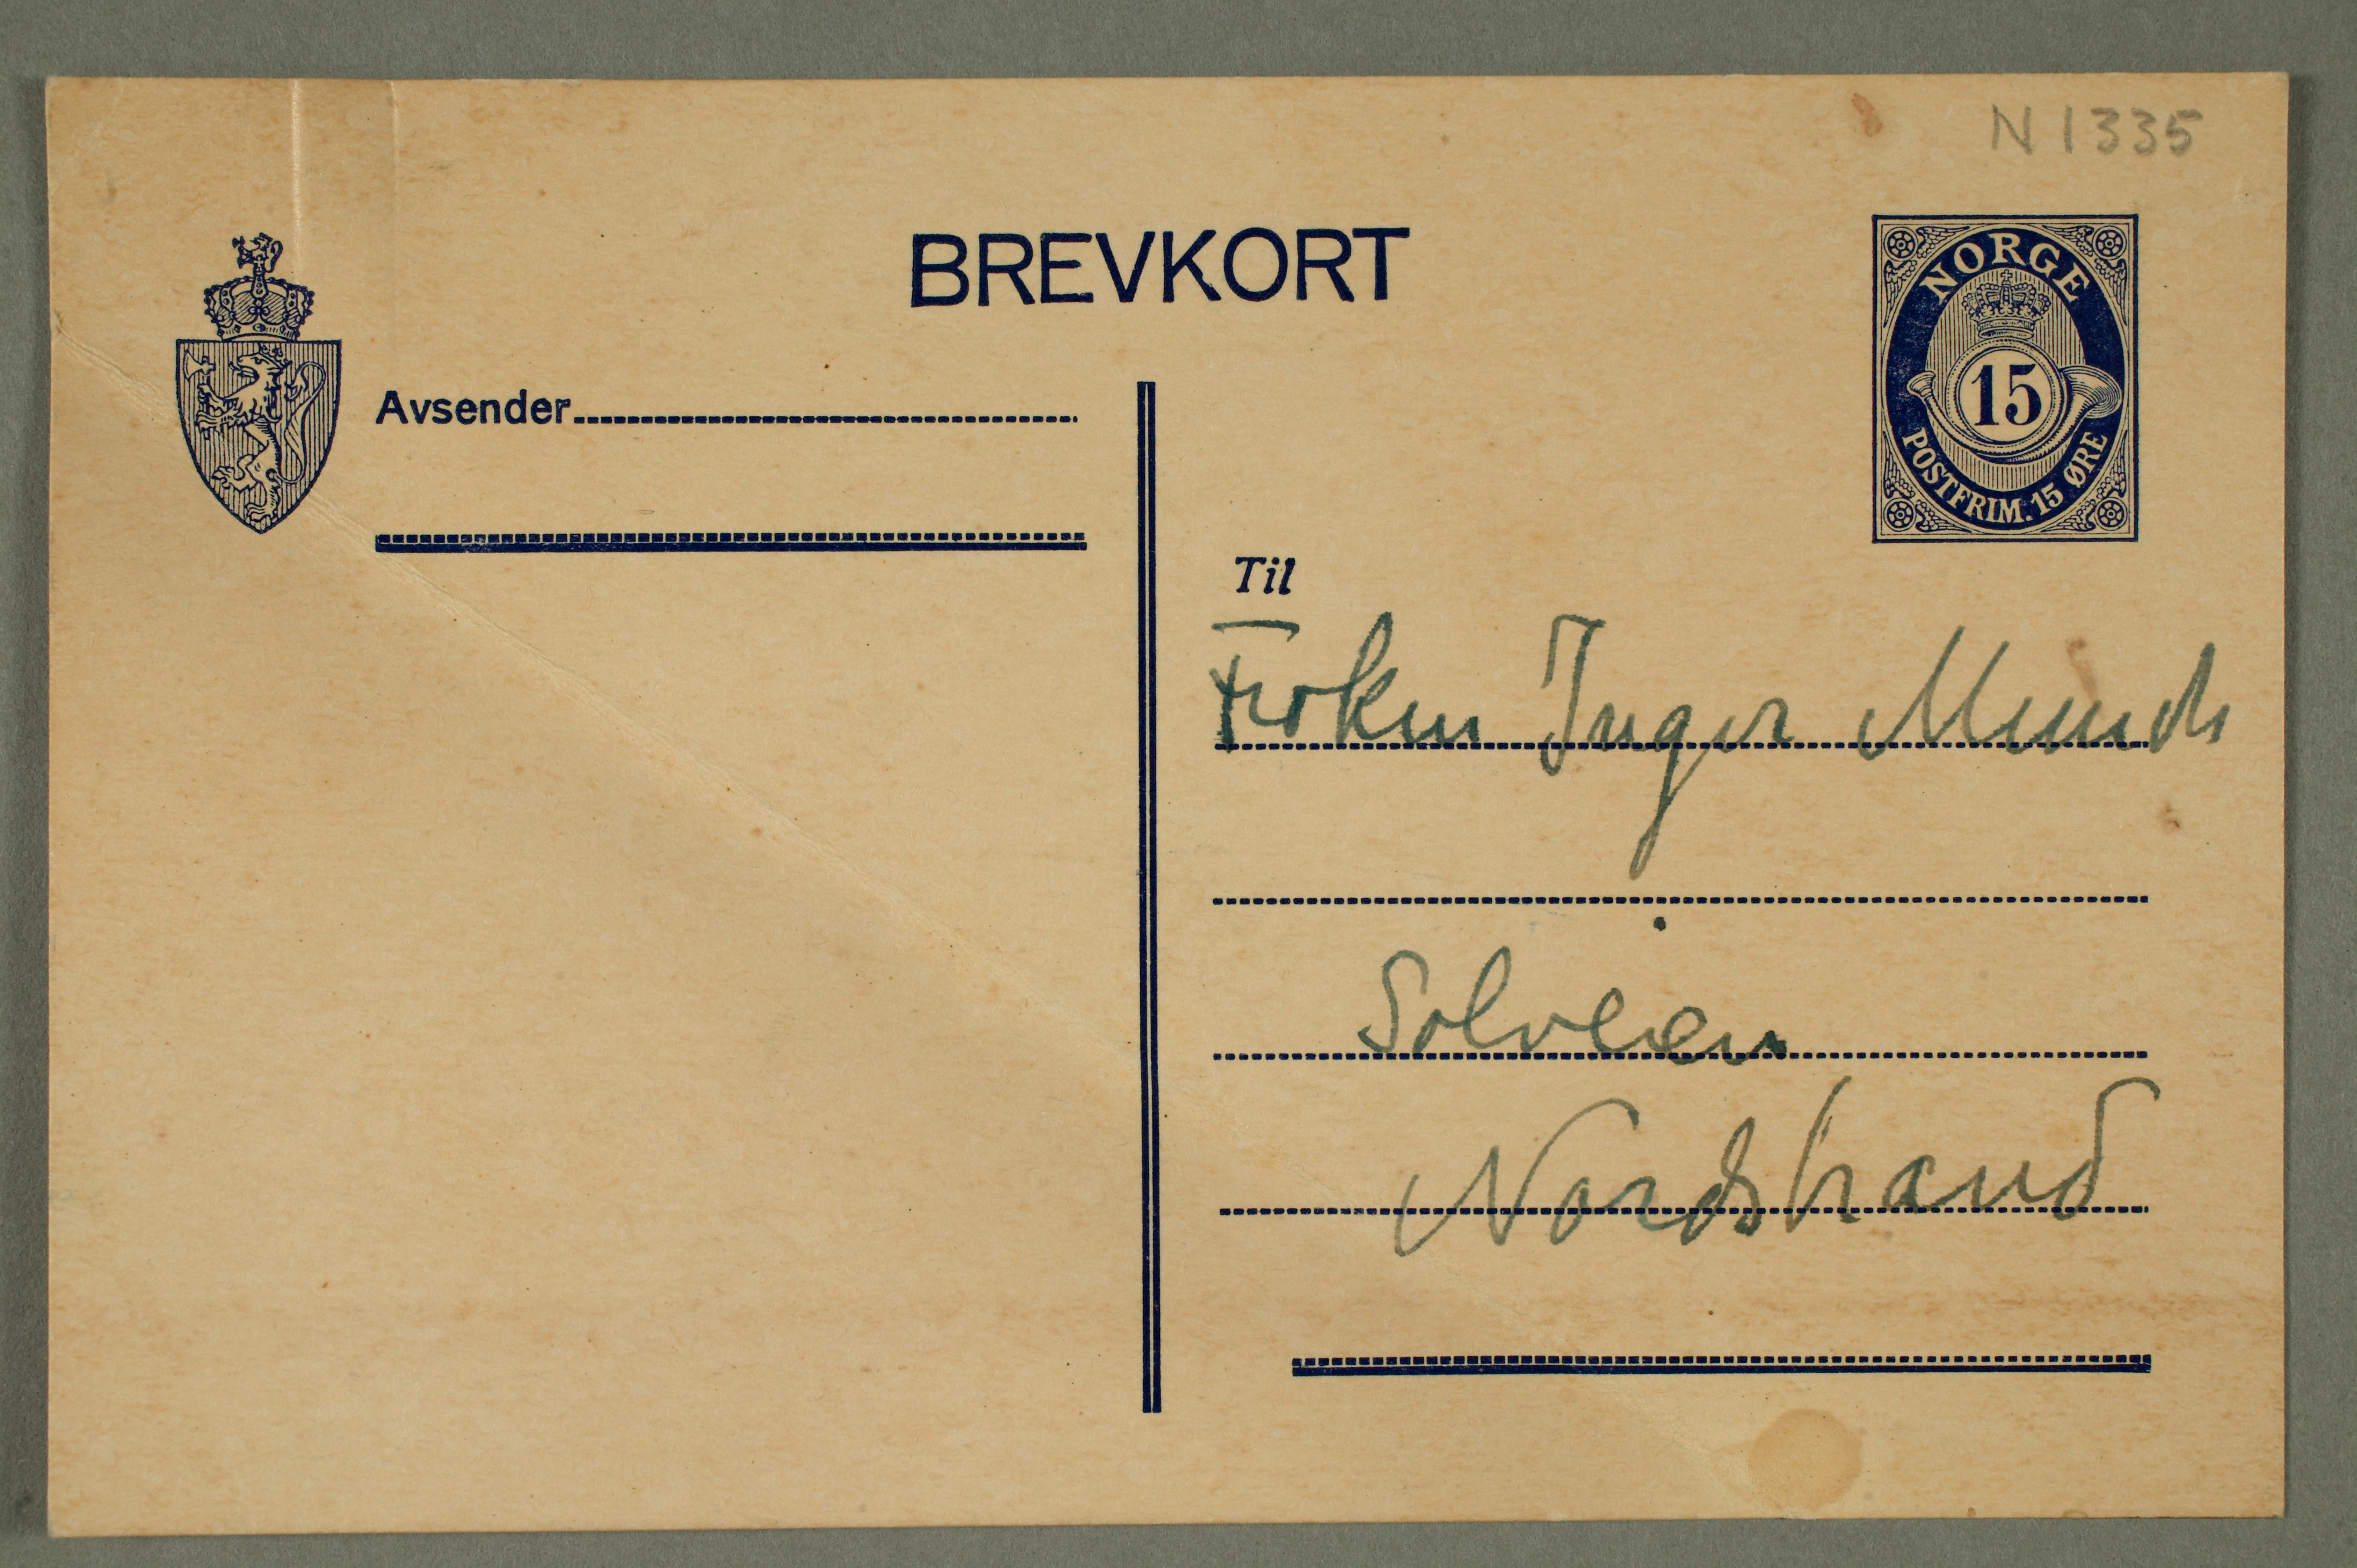 N 1335
BREVKORT
NORGE
15
POSTFRIM. 15 ØRE
Avsender
Til
Frøken Inger Munch
Solveien
Nordstrand